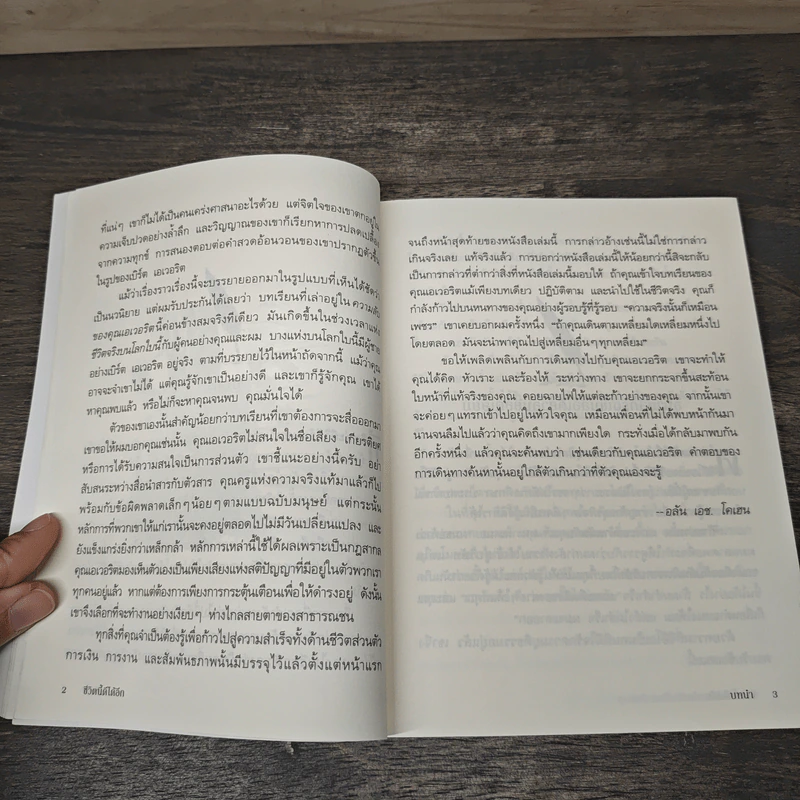 ที่แน่ๆ เขาก็ไม่ได้เป็นคนเคร่งศาสนาอะไรด้วย แต่จิตใจของเขาตกอยู่ใน
ความเจ็บปวดอย่างล้ำลึก และวิญญาณของเขาก็เรียกหาการปลดเปลื้อง
จากความทุกข์ การสนองตอบต่อคำสวดอ้อนวอนของเขาปรากฏตัวขึ้น
ในรูปของเบิร์ต เอเวอริต
แม้ว่าเรื่องราวเรื่องนี้จะบรรยายออกมาในรูปแบบที่เห็นได้ชัดว่า
เป็นนวนิยาย แต่ผมรับประกันได้เลยว่า บทเรียนที่เล่าอยู่ใน ความลับ
ของคุณเอเวอริตนี้ค่อนข้างสมจริงทีเดียว มันเกิดขึ้นในช่วงเวลาแห่ง
ชีวิตจริงบนโลกใบนี้กับผู้คนอย่างคุณและผม บางแห่งบนโลกใบนี้มีผู้ชาย
อย่างเบิร์ต เอเวอริต อยู่จริง ตามที่บรรยายไว้ในหน้าถัดจากนี้ แม้ว่าคุณ
อาจจะจำเขาไม่ได้ แต่คุณรู้จักเขาเป็นอย่างดี และเขาก็รู้จักคุณ เขาได้
หาคุณพบแล้ว หรือไม่ก็จะหาคุณจนพบ คุณมั่นใจได้
ตัวของเขาเองนั้นสำคัญน้อยกว่าบทเรียนที่เขาต้องการจะสื่อออกมา
เขาขอให้ผมบอกคุณเช่นนั้น คุณเอเวอริตไม่สนใจในชื่อเสียง เกียรติยศ
หรือการได้รับความสนใจเป็นการส่วนตัว เขาชี้แนะอย่างนี้ครับ อย่า
สับสนระหว่างสื่อนำสารกับตัวสาร คุณครูแห่งความจริงแท้มาแล้วก็ไป
พร้อมกับข้อผิดพลาดเล็กๆน้อยๆตามแบบฉบับมนุษย์ แต่กระนั้น
หลักการที่พวกเขาให้แก่เรานั้นจะคงอยู่ตลอดไปไม่มีวันเปลี่ยนแปลง และ
ยังแข็งแกร่งยิ่งกว่าเหล็กกล้า หลักการเหล่านี้ใช้ได้ผลเพราะเป็นกฎสากล
คุณเอเวอริตมองเห็นตัวเองเป็นเพียงเสียงแห่งสติปัญญาที่มีอยู่ในตัวพวกเรา
ทุกคนอยู่แล้ว หากแต่ต้องการเพียงการกระตุ้นเตือนเพื่อให้ดำรงอยู่ ดังนั้น
เขาจึงเลือกที่จะทำงานอย่างเงียบๆ ห่างไกลสายตาของสาธารณชน
ทุกสิ่งที่คุณจำเป็นต้องรู้เพื่อก้าวไปสู่ความสำเร็จทั้งด้านชีวิตส่วนตัว
การเงิน การงาน และสัมพันธภาพนั้นมีบรรจุไว้แล้วตั้งแต่หน้าแรก
2 ชีวิตนี้ดีได้อีก
จนถึงหน้าสุดท้ายของหนังสือเล่มนี้ การกล่าวอ้างเช่นนี้ไม่ใช่การกล่าว
เกินจริงเลย แท้จริงแล้ว การบอกว่าหนังสือเล่มนี้ให้น้อยกว่านี้สิจะกลับ
เป็นการกล่าวที่ต่ำกว่าสิ่งที่หนังสือเล่มนี้มอบให้ ถ้าคุณเข้าใจบทเรียนของ
คุณเอเวอริตแม้เพียงบทเดียว ปฏิบัติตาม และนำไปใช้ในชีวิตจริง คุณก็
กำลังก้าวไปบนหนทางของคุณอย่างผู้รอบรู้ที่รู้รอบ “ความจริงนั้นก็เหมือน
เพชร” เขาเคยบอกผมครั้งหนึ่ง “ถ้าคุณเดินตามเหลี่ยมใดเหลี่ยมหนึ่งไป
โดยตลอด มันจะนำพาคุณไปสู่เหลี่ยมอื่นๆทุกเหลี่ยม”
ขอให้เพลิดเพลินกับการเดินทางไปกับคุณเอเวอริต เขาจะทำให้
คุณได้คิด หัวเราะ และร้องไห้ ระหว่างทาง เขาจะยกกระจกขึ้นสะท้อน
ใบหน้าที่แท้จริงของคุณ คอยฉายไฟให้แต่ละก้าวย่างของคุณ จากนั้นเขา
จะค่อยๆแทรกเข้าไปอยู่ในหัวใจคุณ เหมือนเพื่อนที่ไม่ได้พบหน้ากันมา
นานจนลืมไปแล้วว่าคุณคิดถึงเขามากเพียงใด กระทั่งเมื่อได้กลับมาพบกัน
อีกครั้งหนึ่ง แล้วคุณจะค้นพบว่า เช่นเดียวกับคุณเอเวอริต คำตอบของ
การเดินทางค้นหานั้นอยู่ใกล้ตัวเกินกว่าที่ตัวคุณเองจะรู้
—อลัน เอช. โคเฮน
บทนำ 3